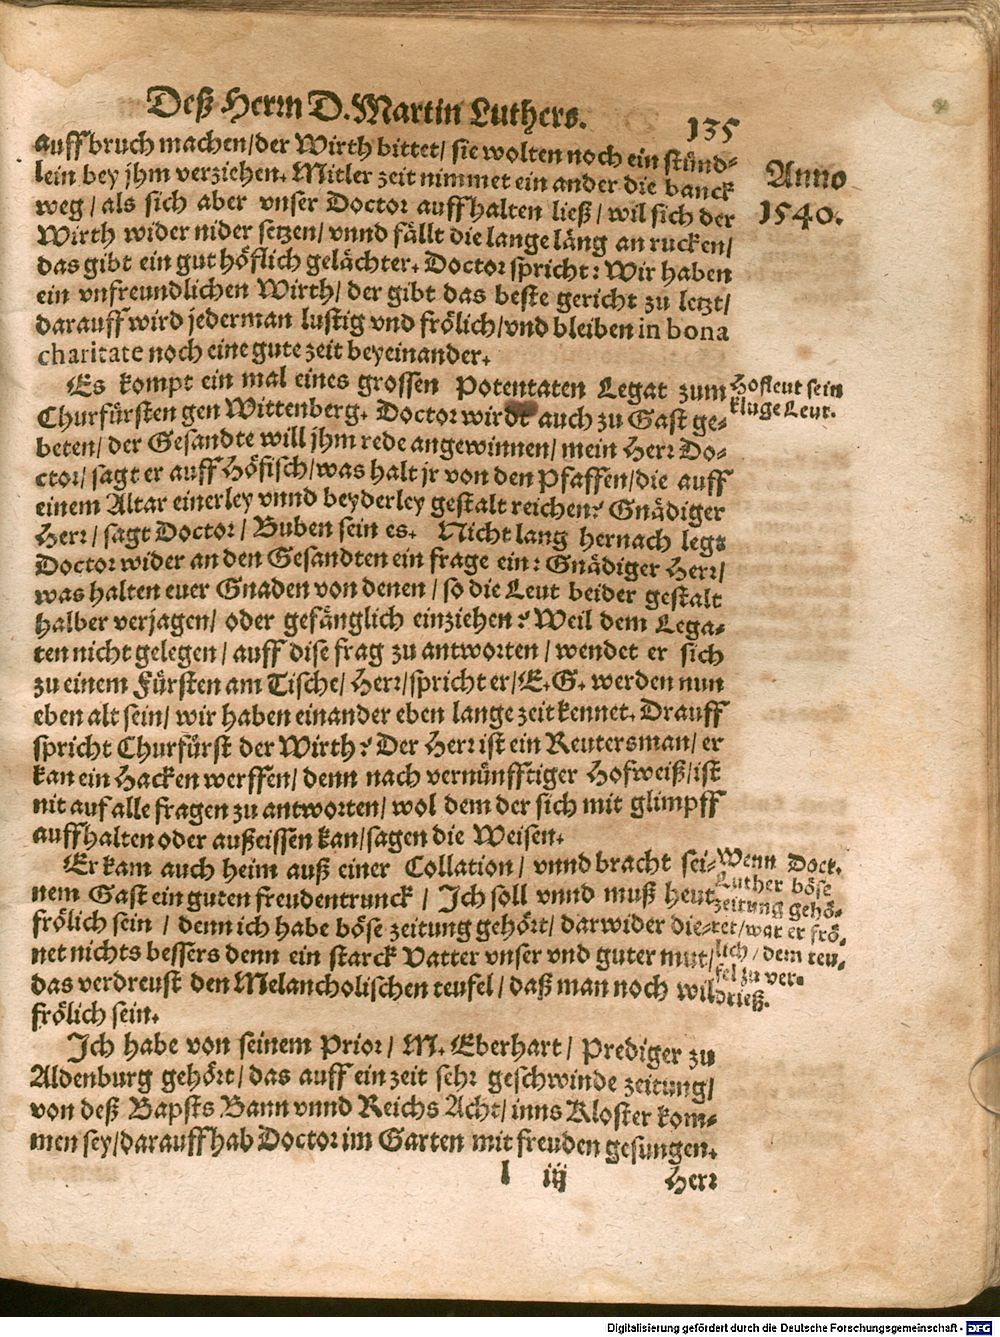 Deß Herrn D. Martin Luthers. 135
auffbruch machen/der Wirth bittet/ sie wolten noch ein stünd-
lein bey jhm verziehen. Mitler zeit nimmet ein ander die banck
weg / als sich aber vnser Doctor auffhalten ließ / wil sich der
Wirth wider nider setzen/ vnnd fällt die lange läng an rucken/
das gibt ein gut höflich gelächter. Doctor spricht: Wir haben
ein vnfreundlichen Wirth/ der gibt das beste gericht zu letzt/
darauff wird jederman lustig vnd frölich/vnd bleiben in bona
charitate noch eine gute zeit beyeinander.
Anno
1540.
Es kompt ein mal eines grossen Potentaten Legat zum
Churfürsten gen Wittenberg. Doctor wirdt auch zu Gast ge-
beten/ der Gesandte will jhm rede angewinnen/ mein Herr Do-
ctor/ sagt er auff Höfisch/was halt jr von den Pfaffen/die auff
einem Altar einerley vnnd beyderley gestalt reichen? Gnädiger
Herr / sagt Doctor / Buben sein es. Nicht lang hernach legt
Doctor wider an den Gesandten ein frage ein: Gnädiger Herr/
was halten euer Gnaden von denen / so die Leut beider gestalt
halber verjagen/ oder gefänglich einziehen? Weil dem Lega-
ten nicht gelegen / auff dise frag zu antworten / wendet er sich
zu einem Fürsten am Tische/ Herr/spricht er/E. G. werden nun
eben alt sein/ wir haben einander eben lange zeit kennet. Drauff
spricht Churfürst der Wirth? Der Herr ist ein Reutersman/ er
kan ein Hacken werffen/ denn nach vernünfftiger Hofweiß/ist
nit auf alle fragen zu antworten/ wol dem der sich mit glimpff
auffhalten oder außeissen kan/sagen die Weisen.
Hofleut sein
kluge Leut.
Er kam auch heim auß einer Collation / vnnd bracht sei-
nem Gast ein guten freudentrunck / Ich soll vnnd muß heut
frölich sein / denn ich habe böse zeitung gehört/ darwider die-
net nichts bessers denn ein starck Vatter vnser vnd guter mut/
das verdreust den Melancholischen teufel / daß man noch wil
frölich sein.
Wenn Doct.
Luther böse
zeitung gehö-
ret/war er frö-
lich / dem teu-
fel zu ver-
drieß.
Ich habe von seinem Prior/ M. Eberhart / Prediger zu
Aldenburg gehört/ das auff ein zeit sehr geschwinde zeitung/
von deß Bapsts Bann vnnd Reichs Acht/ inns Kloster kom-
men sey/darauff hab Doctor im Garten mit freuden gesungen.
l iij Herr
Digitalisierung gefördert durch die Deutsche Forschungsgemeinschaft - DFG